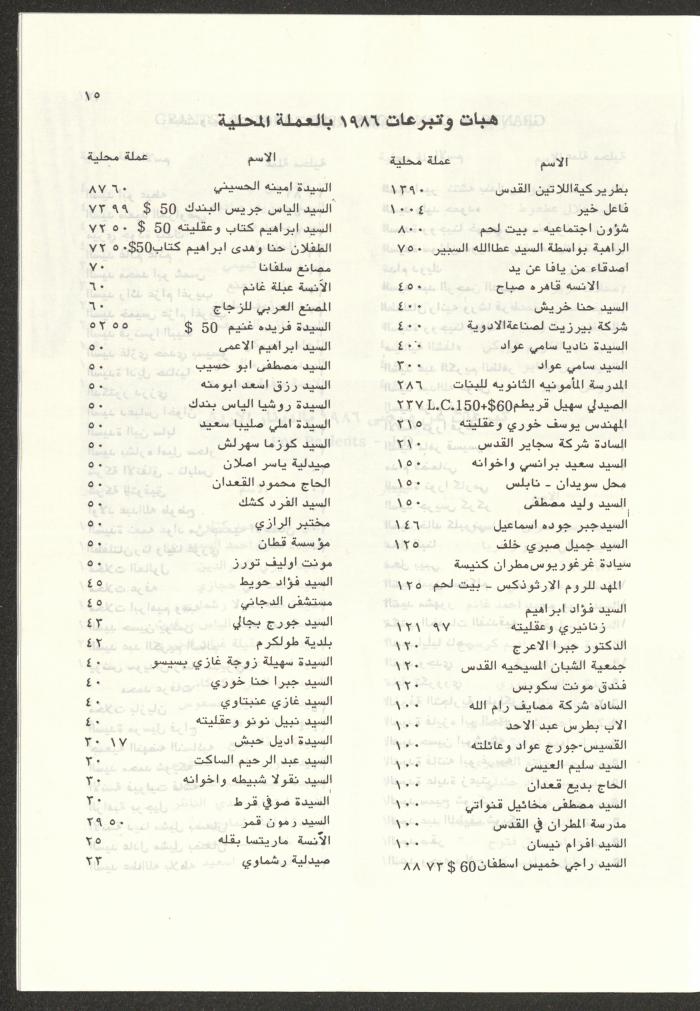 ١٥
هبات وتبرعات ١٩٨٦ بالعملة المحلية
الاسم عملة محلية
بطريركيةاللاتين القدس ١٣٩٠
فاعل خير ١٠٠٤
شؤون اجتماعيه - بيت لحم ٨٠٠
الراهبة بواسطة السيد عطاالله السبير ٧٥٠
اصدقاء من يافا عن يد
الانسه قاهره صباح ٤٥٠
السيد حنا خريش ٤٠٠
شركة بيرزيت لصناعةالادوية ٤٠٠
السيدة ناديا سامي عواد ٤٠٠
السيد سامي عواد ٣٠٠
المدرسة المأمونيه الثانويه للبنات ٢٨٦
الصيدلي سهيل قريطم L.C.150+$60 ٢٣٧
المهندس يوسف خوري وعقليته ٢١٥
السادة شركة سجاير القدس ٢١٠
السيد سعيد برانسي واخوانه ١٥٠
محل سويدان - نابلس ١٥٠
السيد وليد مصطفى ١٥٠
السيدجبر جوده اسماعيل ١٤٦
السيد جميل صبري خلف ١٢٥
سيادة غرغوريوس مطران كنيسة
المهد للروم الارثوذكس - بيت لحم ١٢٥
السيد فؤاد ابراهيم
زنانيري وعقليته ٩٧ ١٢١
الدكتور جبرا الاعرج ١٢٠
جمعية الشبان المسيحيه القدس ١٢٠
فندق مونت سكوبس ١٢٠
الساده شركة مصايف رام الله ١٠٠
الاب بطرس عبد الاحد ١٠٠
القسيس-جورج عواد وعائلته ١٠٠
السيد سليم العيسى ١٠٠
الحاج بديع قعدان ١٠٠
السيد مصطفى مخائيل قنواتي ١٠٠
مدرسة المطران في القدس ١٠٠
السيد افرام نيسان ١٠٠
السيد راجي خميس اسطفان 60 $ ٧٣ ٨٨
الاسم عملة محلية
السيدة امينه الحسيني ٦٠ ٨٧
السيد الياس جريس البندك 50 $ ٩٩ ٧٣
السيد ابراهيم كتاب وعقليته 50 $ ٥٠ ٧٢
الطفلان حنا وهدى ابراهيم كتاب 50$ ٥٠ ٧٢
مصانع سلفانا ٧٠
الآنسة عبلة غانم ٦٠
المصنع العربي للزجاج ٦٠
السيدة فريده غنيم 50 $ ٥٥ ٥٢
السيد ابراهيم الاعمى ٥٠
السيد مصطفى ابو حسيب ٥٠
السيد رزق اسعد ابومنه ٥٠
السيدة روشيا الياس بندك ٥٠
السيدة املي صليبا سعيد ٥٠
السيد كوزما سهرلش ٥٠
صيدلية ياسر اصلان ٥٠
الحاج محمود القعدان ٥٠
السيد الفرد كشك ٥٠
مختبر الرازي ٥٠
مؤسسة قطان ٥٠
مونت اوليف تورز ٥٠
السيد فؤاد حويط ٤٥
مستشفى الدجاني ٤٥
السيد جورج بجالي ٤٣
بلدية طولكرم ٤٢
السيدة سهيلة زوجة غازي بسيسو ٤٠
السيد جبرا حنا خوري ٤٠
السيد غازي عنبتاوي ٤٠
السيد نبيل نونو وعقليته ٤٠
السيدة اديل حبش ١٧ ٣٠
السيد عبد الرحيم الساكت ٣٠
السيد نقولا شبيطه واخوانه ٣٠
السيدة صوفي قرط ٣٠
السيد رمون قمر ٥٠ ٢٩
الآنسة ماريتسا بقله ٢٥
صيدلية رشماوي ٢٣